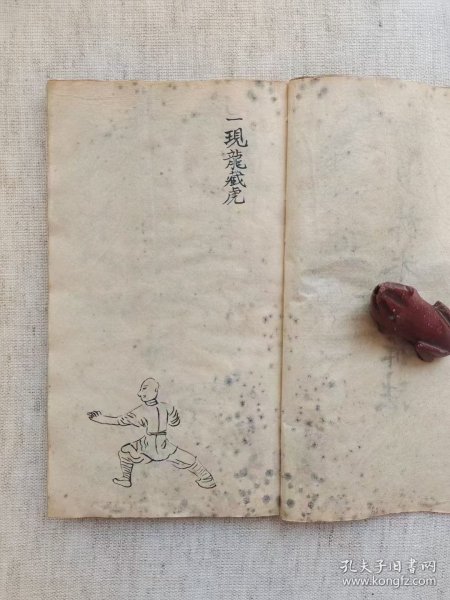 一現龍藏虎
孔夫子旧书网
www.kongfz.com